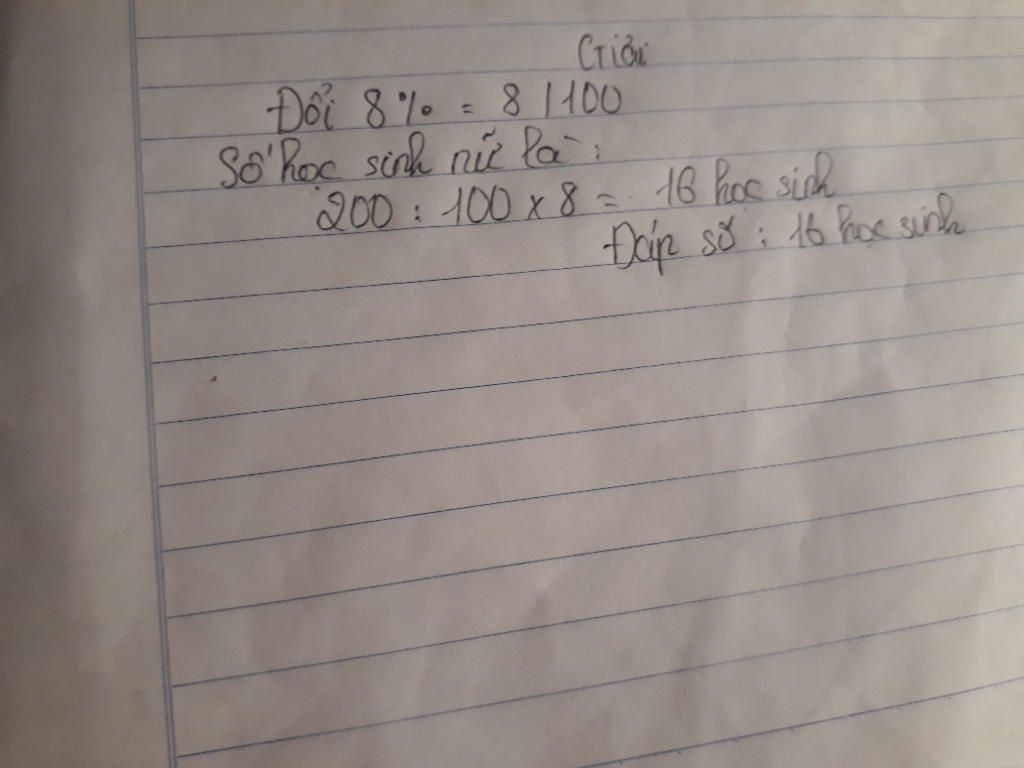 Giải
Đổi 8% = 8/100
Số học sinh nữ là:
200 : 100 x 8 = 16 học sinh
Đáp số : 16 học sinh